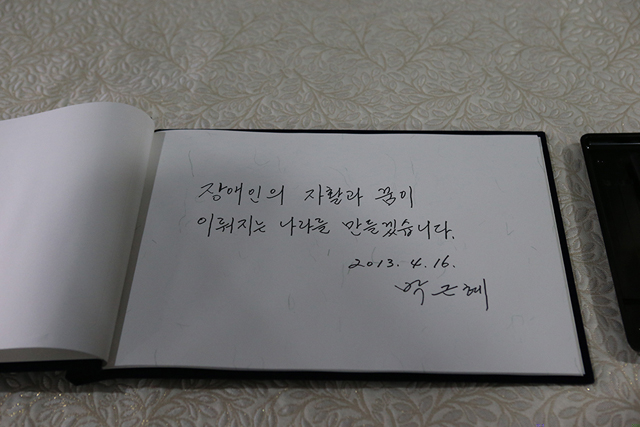 장애인의 자활과 꿈이
이뤄지는 나라를 만들겠습니다.
2013. 4. 16.
박근혜